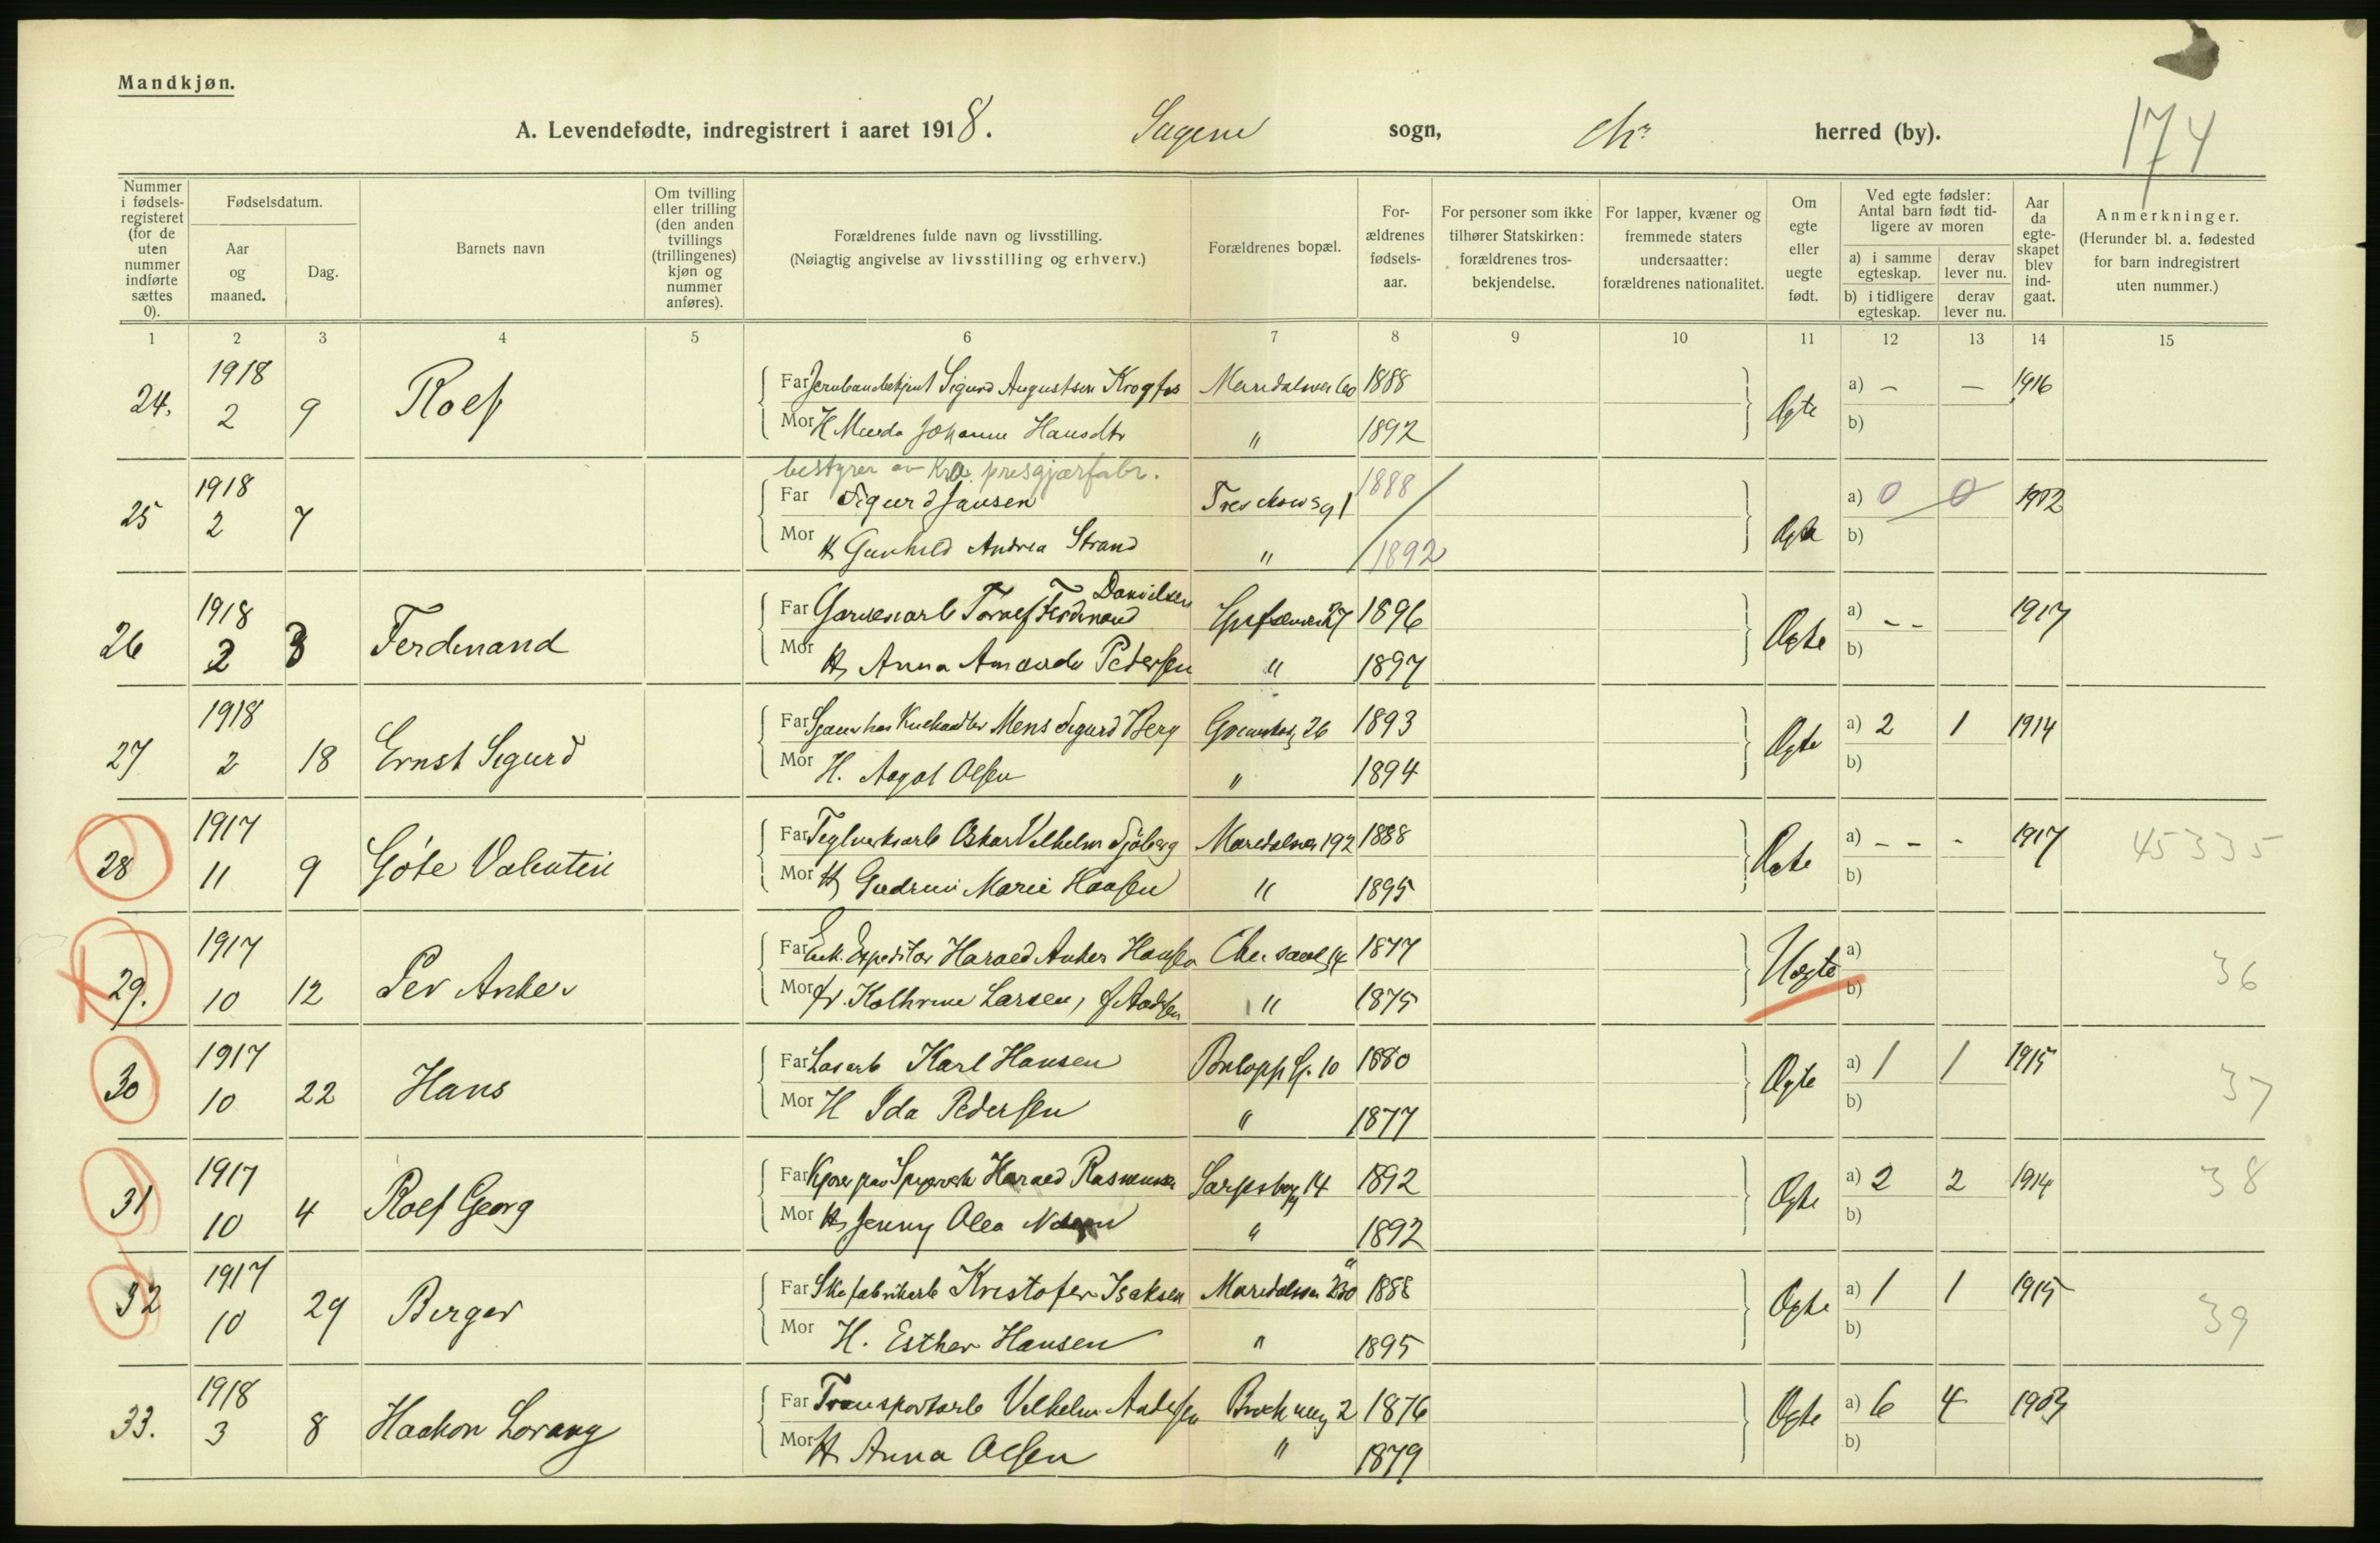 Mandkjøn.
A. Levendefødte, indregistrert i aaret 1918. Sagene sogn, Kr. herred (by).
174
Nummer i fødselsregisteret (for de uten nummer indførte sættes 0).
Fødselsdatum.
Aar og maaned.
Dag.
Barnets navn
Om tvilling eller trilling (den anden tvillings (trillingenes) kjøn og nummer anføres).
Forældrenes fulde navn og livsstilling.
(Nøiagtig angivelse av livsstilling og erhverv.)
Forældrenes bopæl.
Forældrenes fødselsaar.
For personer som ikke tilhører Statskirken: forældrenes trosbekjendelse.
For lapper, kvæner og fremmede staters undersaatter: forældrenes nationalitet.
Om egte eller uegte født.
Ved egte fødsler: Antal barn født tidligere av moren
a) i samme egteskap.
derav lever nu.
b) i tidligere egteskap.
derav lever nu.
Aar da egteskapet blev indgaat.
Anmerkninger.
(Herunder bl. a. fødested for barn indregistrert uten nummer.)
1 2 3 4 5 6 7 8 9 10 11 12 13 14 15
24. 1918 2 9 Rolf
Far Jernbanebetjent Sigurd Augustsen Krogfos Maridalsvei 60 1888 Egte a) - - 1916
Mor H Johanne Hansdtr " 1892 b)
bestyrer av Kra. presgjærfabr.
25 1918 2 7
Far Sigurd Jansen Tresckowsg 1 1888 Egte a) 0 0 1912
Mor H Gunhild Andrea Strand " 1892 b)
Danielsen
26 1918 2 3 Ferdinand
Far Garveriarb Toralf Ferdinand 27 1896 Egte a) - - 1917
Mor H Anna Amanda Pedersen " 1897 b)
27 1918 2 18 Ernst Sigurd
Far Mens Sigurd Berg 26 1893 Egte a) 2 1 1914
Mor H. Aagot Olsen " 1894 b)
28 1917 11 9 Göte Valentin
Far Teglverksarb Oskar Vilhelm Sjöberg Maridalsvei 192 1888 Egte a) - - - 1917 45335
Mor H Gudrun Marie Hansen " 1895 b)
29. 1917 10 12 Per Anker
Far Expeditør Harald Anker Hansen 1877 Uegte a) 36
Mor fr. Kathrine Larsen, f. " 1875 b)
30 1917 10 22 Hans
Far Løsarb Karl Hansen 10 1880 Egte a) 1 1 1915 37
Mor H Ida Pedersen " 1877 b)
31 1917 10 4 Rolf Georg
Far Kjører paa Harald Rasmussen Sarpsborgg 14 1892 Egte a) 2 2 1914 38
Mor H Jenny Olea " 1892 b)
32 1917 10 29 Birger
Far Skofabrikarb Kristofer Isaksen Maridalsvei 230 1888 Egte a) 1 1 1915 39
Mor H. Esther Hansen " 1895 b)
33. 1918 3 8 Haakon Lorang
Far Transportarb Vilhelm Andersen 2 1876 Egte a) 6 4 1903
Mor H Anna Olsen " 1879 b)